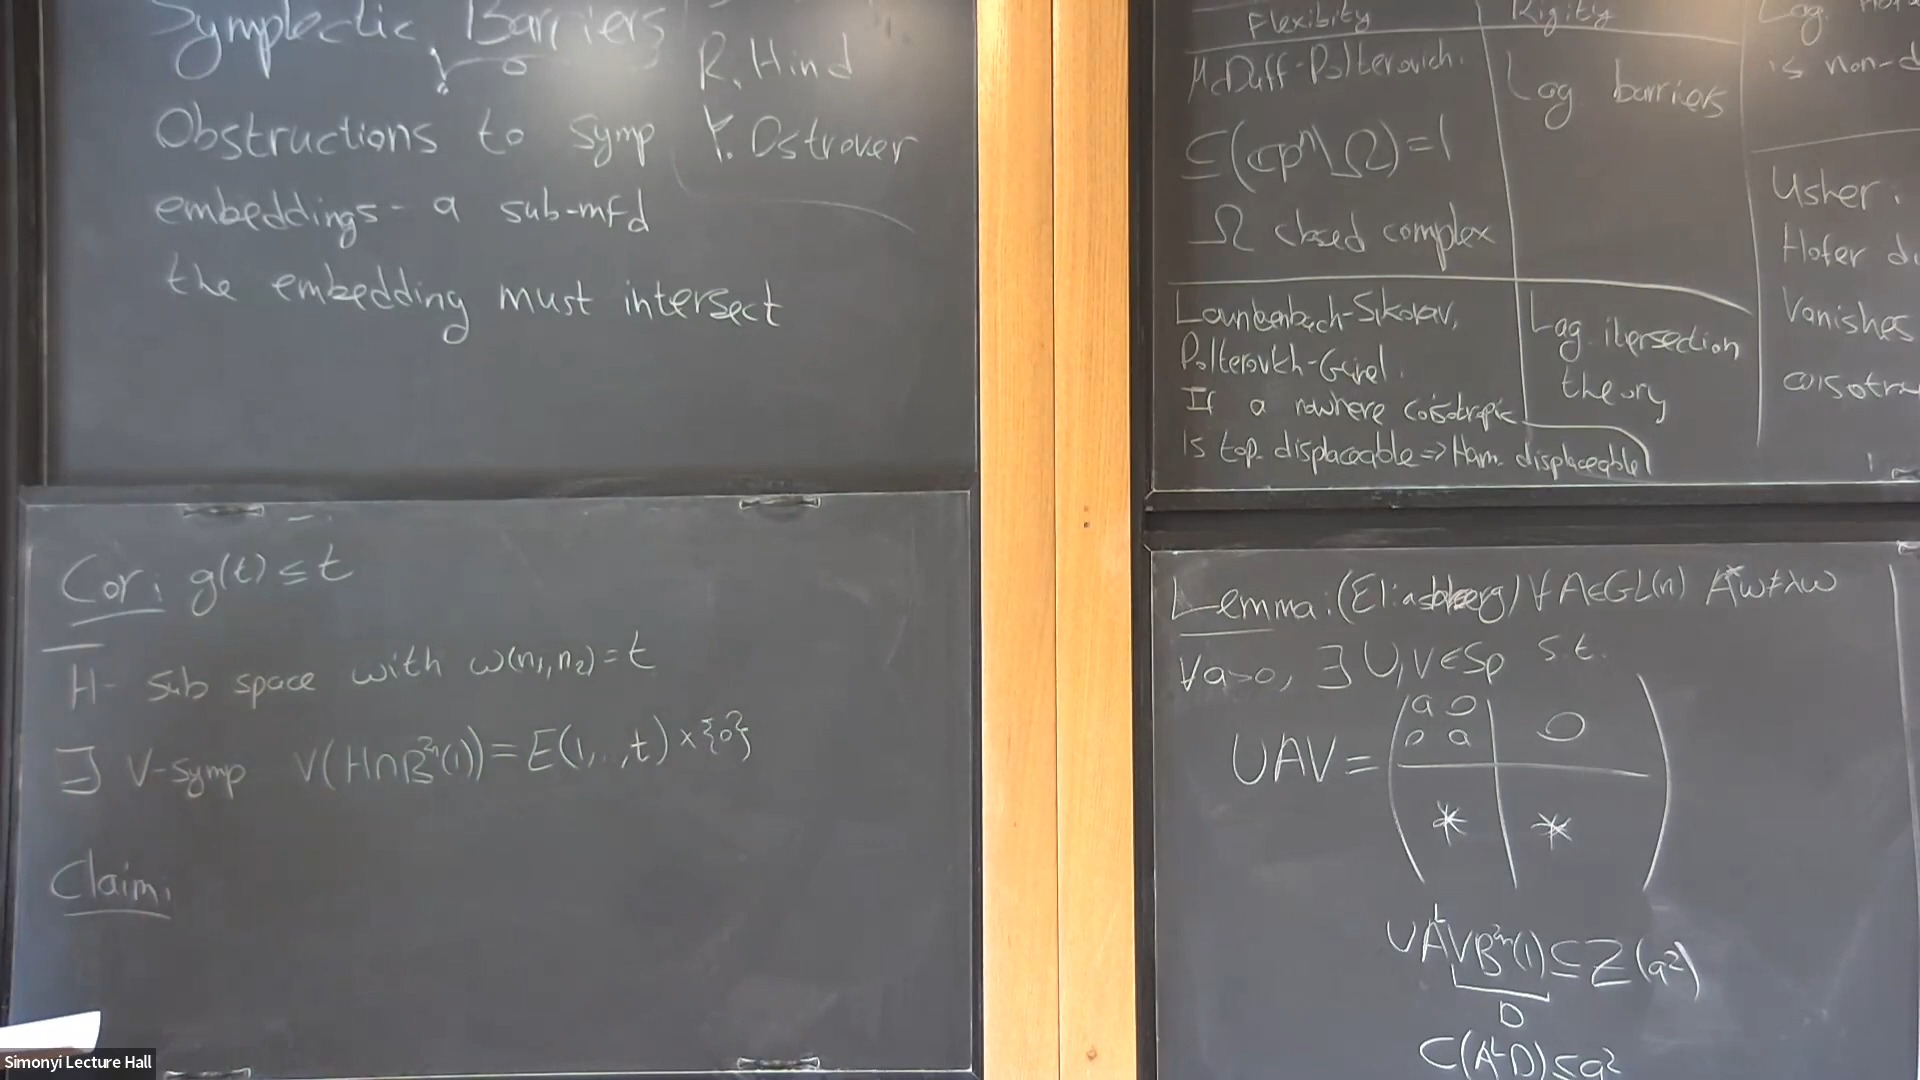 Symplectic Barriers
R. Hind
Y. Ostrover
Obstructions to symp
embeddings - a sub-mfd
the embedding must intersect
Cor: g(t) ≤ t
H - sub space with ω(n₁,n₂)=t
∃ V-symp V(H∩B²ⁿ(1)) = E(1,..,t) × {0}
Claim:
Flexibity Rigity
McDuff-Polterovich.
C(CPⁿ\Ω)=1
Ω closed complex
Lag barriers
Polterovich-Gürel.
If a nowhere coisotropic
Is top. displaceable => Ham. displaceable
Lag. itersection
theory
Lag.
is non-d
Usher:
Hofer d
Vanishes
coisotro
Lemma: (Eliashberg) ∀ A∈GL(n) A*ω≠λω
∀a>0, ∃ U,V∈Sp s.t.
UAV = ( a 0 | 0
0 a |
* | * )
UAᴸVB²ⁿ(1) ⊆ Z(a²)
D
C(AᴸD) ≤ a²
Simonyi Lecture Hall